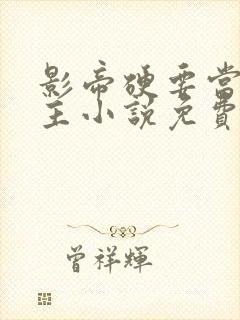 影帝硬要當
主小說免費
曾祥輝